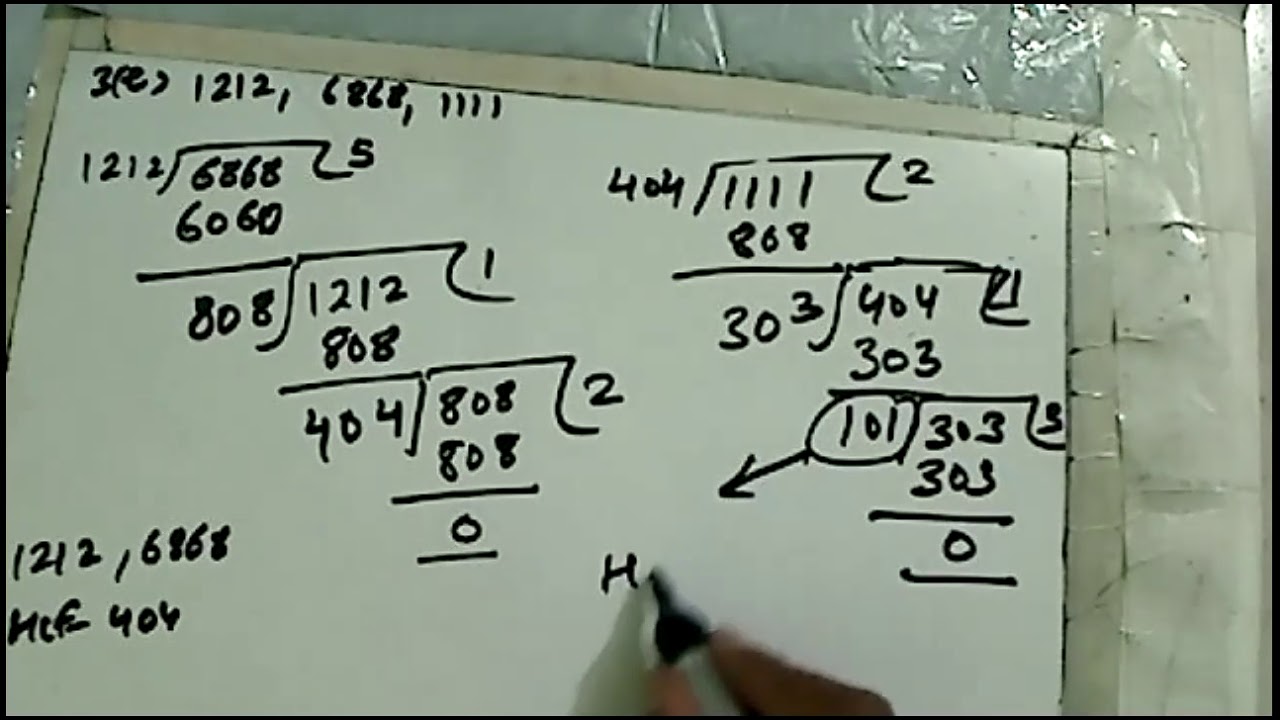 3(e) 1212, 6868, 1111
1212 6868 5
6060
808 1212 1
808
404 808 2
808
0
1212, 6868
HCF 404
404 1111 2
808
303 404 1
303
101 303 3
303
0
H